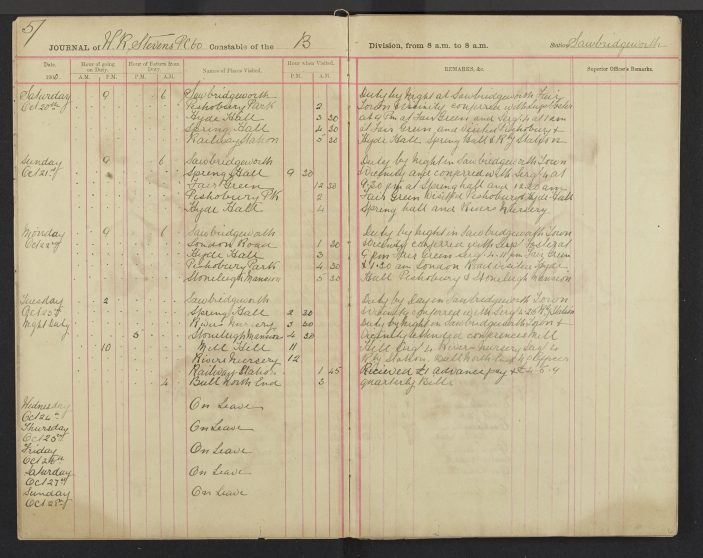 51
JOURNAL of H. R. Stevens P.C. 60 Constable of the B Division, from 8 a.m. to 8 a.m. Station, Sawbridgeworth
Date. Hour of going on Duty. Hour of Return from Duty. Names of Places Visited. Hour when Visited. REMARKS, &c. Superior Officer's Remarks.
190 A.M. P.M. A.M. P.M. P.M. A.M.
Saturday 9 6 Sawbridgeworth
Oct 20th Pishobury Park 2
Hyde Hall 3 30
Spring Hall 4 30
Railway Station 5 30
Duty by Night at Sawbridgeworth Fair
Town & vicinity conferred with
at 9 pm at Fair Green and Sergt 4 at 1 am
at Fair Green and visited Pishobury &
Hyde Hall Spring Hall & Ry Station
Sunday 9 6 Sawbridgeworth
Oct 21st Spring Hall 9 30
Fair Green 12 30
Pishobury Pk 2
Hyde Hall 4
Duty by Night in Sawbridgeworth Town
& vicinity and conferred with Sergt 4 at
9.30 pm at Spring hall and 12.30 am
Fair Green visited Pishobury & Hyde Hall
Spring hall and Rivers Nursery
Monday 9 6 Sawbridgeworth
Oct 22nd London Road 1 30
Hyde Hall 3
Pishobury Park 4 30
Stoneleigh Mansion 5 30
Duty by Night in Sawbridgeworth Town
& vicinity conferred with Sergt Foster at
9 pm Fair Green Sergt 4 11 pm Fair Green
& 1.30 am London Road visited Hyde
Hall Pishobury & Stoneleigh Mansion
Tuesday 2 Sawbridgeworth
Oct 23rd Spring Hall 2 30
Night Duty Rivers Nursery 3 30
5 Stoneleigh Mansion 4 30
10 Mill Hill 11
Rivers Nursery 12
Railway Station 1 45
4 Bull North End 3
Duty by Day in Sawbridgeworth Town
& vicinity conferred with Sergt 4 Ry Station
Duty by Night on Sawbridgeworth Town &
vicinity attended conferences Mill
Hill Sergt 4 Rivers Nursery Sergt 4
Ry Station. Bull North End
Received £1 advance pay & £4-5-9
quarterly Bills
Wednesday On Leave
Oct 24th
Thursday On Leave
Oct 25th
Friday On Leave
Oct 26th
Saturday On Leave
Oct 27th
Sunday On Leave
Oct 28th